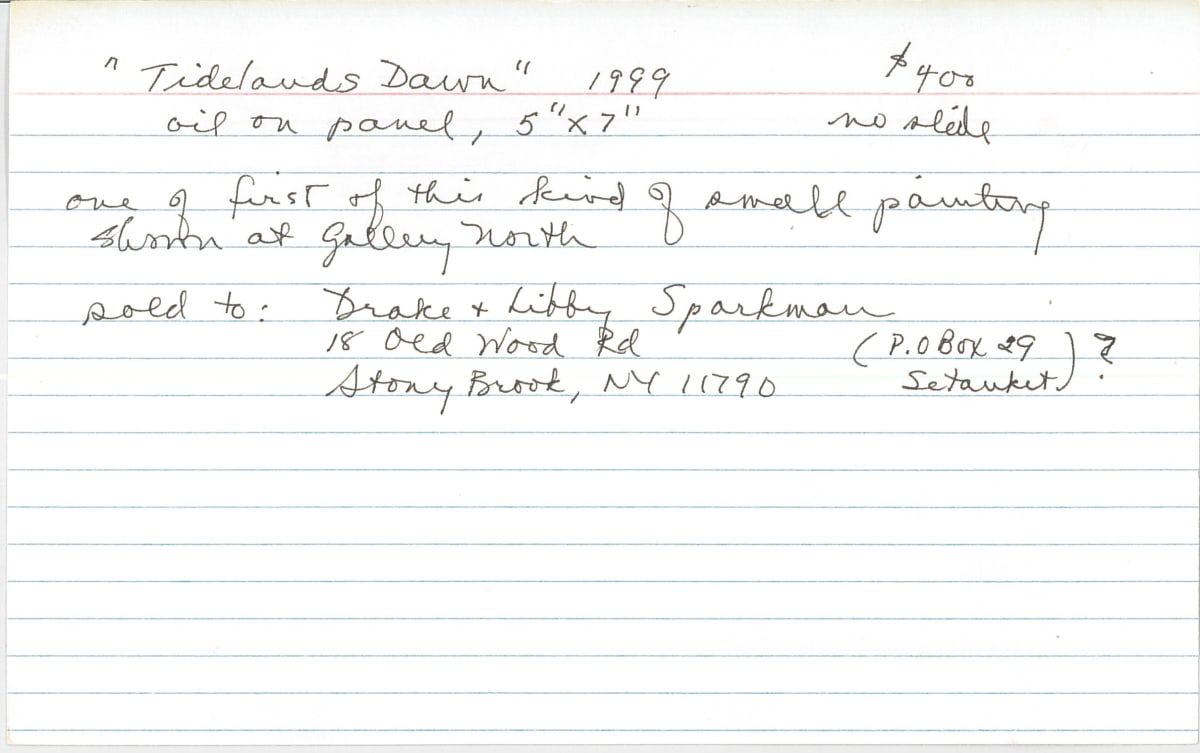 "Tidelands Dawn" 1999 $400
oil on panel, 5"x7" no slide
one of first of this kind of small painting
shown at Gallery North
sold to: Drake + Libby Sparkman
18 Old Wood Rd (P.O Box 29) ?
Stony Brook, NY 11790 Setauket